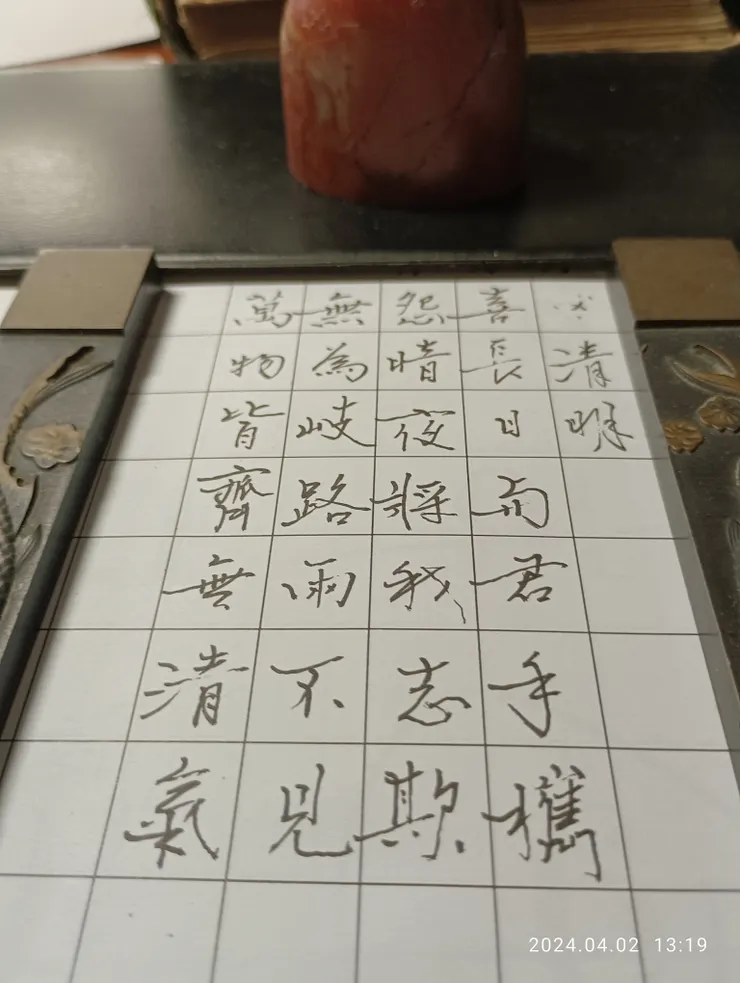 清明
喜長日而君手攜
怨暗夜將我志欺
無為歧路雨不見
萬物皆齊無清氣
2024.04.02 13:19